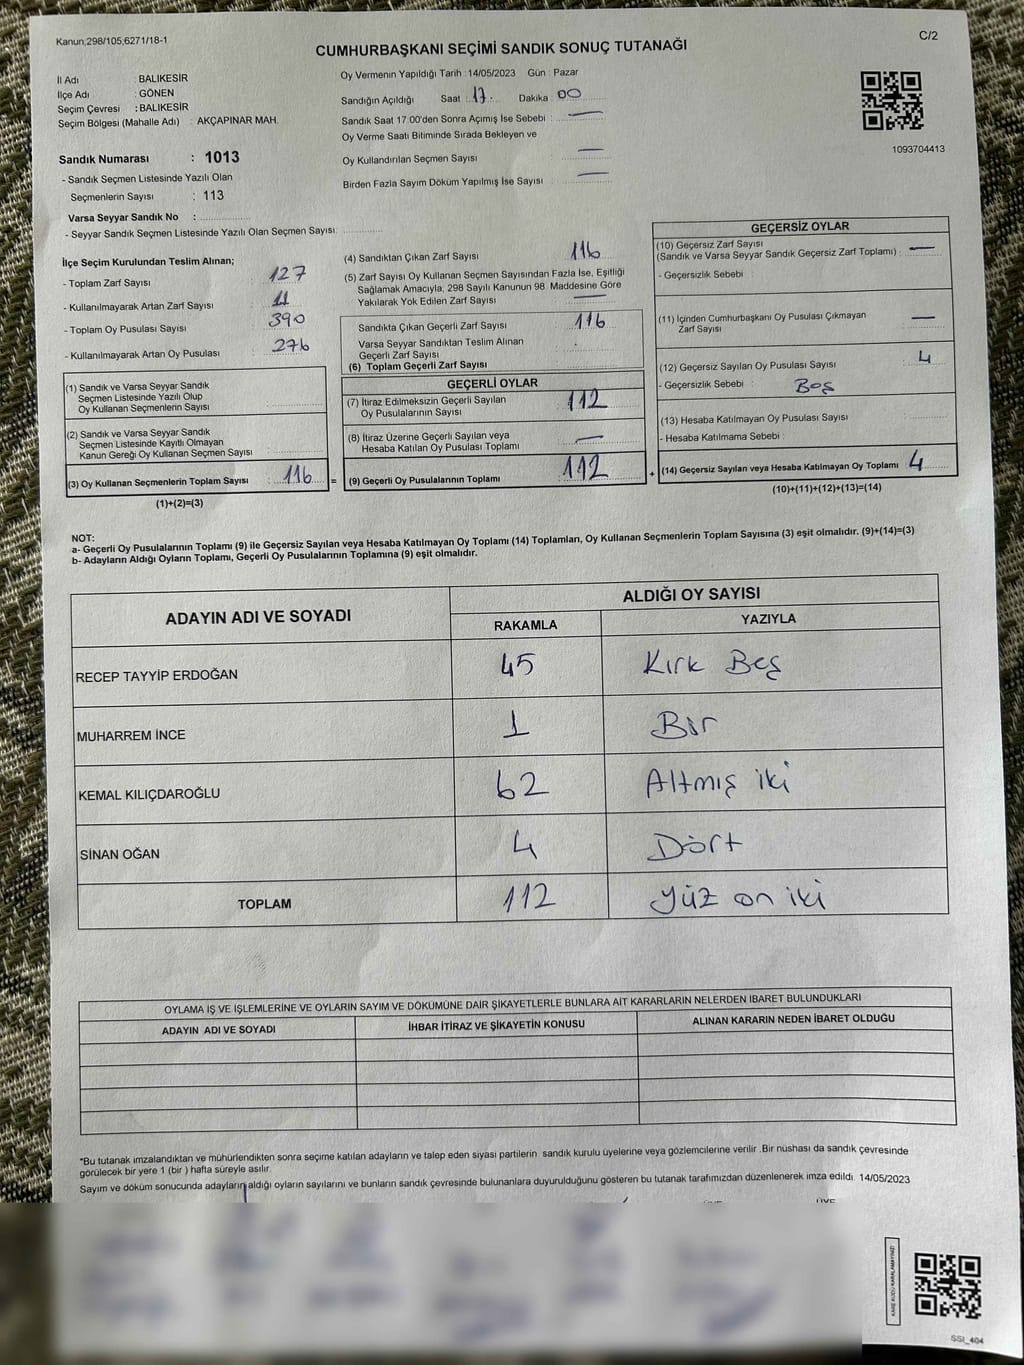 Kanun;298/105;6271/18-1
C/2
CUMHURBAŞKANI SEÇİMİ SANDIK SONUÇ TUTANAĞI
İl Adı : BALIKESİR
İlçe Adı : GÖNEN
Seçim Çevresi : BALIKESİR
Seçim Bölgesi (Mahalle Adı) : AKÇAPINAR MAH.
Sandık Numarası : 1013
- Sandık Seçmen Listesinde Yazılı Olan
Seçmenlerin Sayısı : 113
Varsa Seyyar Sandık No :
- Seyyar Sandık Seçmen Listesinde Yazılı Olan Seçmen Sayısı:
Oy Vermenin Yapıldığı Tarih : 14/05/2023 Gün : Pazar
Sandığın Açıldığı Saat : 17. Dakika : 00
Sandık Saat 17:00'den Sonra Açımış İse Sebebi : —
Oy Verme Saati Bitiminde Sırada Bekleyen ve
Oy Kullandırılan Seçmen Sayısı —
Birden Fazla Sayım Döküm Yapılmış İse Sayısı : —
1093704413
İlçe Seçim Kurulundan Teslim Alınan;
- Toplam Zarf Sayısı : 127
- Kullanılmayarak Artan Zarf Sayısı : 11
- Toplam Oy Pusulası Sayısı : 390
- Kullanılmayarak Artan Oy Pusulası : 276
(1) Sandık ve Varsa Seyyar Sandık
Seçmen Listesinde Yazılı Olup
Oy Kullanan Seçmenlerin Sayısı
(2) Sandık ve Varsa Seyyar Sandık
Seçmen Listesinde Kayıtlı Olmayan
Kanun Gereği Oy Kullanan Seçmen Sayısı
(3) Oy Kullanan Seçmenlerin Toplam Sayısı : 116 =
(1)+(2)=(3)
(4) Sandıktan Çıkan Zarf Sayısı 116
(5) Zarf Sayısı Oy Kullanan Seçmen Sayısından Fazla İse, Eşitliği
Sağlamak Amacıyla, 298 Sayılı Kanunun 98. Maddesine Göre
Yakılarak Yok Edilen Zarf Sayısı —
Sandıkta Çıkan Geçerli Zarf Sayısı 116
Varsa Seyyar Sandıktan Teslim Alınan
Geçerli Zarf Sayısı
(6) Toplam Geçerli Zarf Sayısı
GEÇERLİ OYLAR
(7) İtiraz Edilmeksizin Geçerli Sayılan
Oy Pusulalarının Sayısı 112
(8) İtiraz Üzerine Geçerli Sayılan veya
Hesaba Katılan Oy Pusulası Toplamı —
(9) Geçerli Oy Pusulalarının Toplamı : 112 +
GEÇERSİZ OYLAR
(10) Geçersiz Zarf Sayısı
(Sandık ve Varsa Seyyar Sandık Geçersiz Zarf Toplamı) : —
- Geçersizlik Sebebi :
(11) İçinden Cumhurbaşkanı Oy Pusulası Çıkmayan
Zarf Sayısı —
(12) Geçersiz Sayılan Oy Pusulası Sayısı 4
- Geçersizlik Sebebi : Boş
(13) Hesaba Katılmayan Oy Pusulası Sayısı
- Hesaba Katılmama Sebebi :
(14) Geçersiz Sayılan veya Hesaba Katılmayan Oy Toplamı 4
(10)+(11)+(12)+(13)=(14)
NOT:
a- Geçerli Oy Pusulalarının Toplamı (9) ile Geçersiz Sayılan veya Hesaba Katılmayan Oy Toplamı (14) Toplamları, Oy Kullanan Seçmenlerin Toplam Sayısına (3) eşit olmalıdır. (9)+(14)=(3)
b- Adayların Aldığı Oyların Toplamı, Geçerli Oy Pusulalarının Toplamına (9) eşit olmalıdır.
ADAYIN ADI VE SOYADI
ALDIĞI OY SAYISI
RAKAMLA YAZIYLA
RECEP TAYYİP ERDOĞAN 45 Kırk Beş
MUHARREM İNCE 1 Bir
KEMAL KILIÇDAROĞLU 62 Altmış iki
SİNAN OĞAN 4 Dört
TOPLAM 112 yüz on iki
OYLAMA İŞ VE İŞLEMLERİNE VE OYLARIN SAYIM VE DÖKÜMÜNE DAİR ŞİKAYETLERLE BUNLARA AİT KARARLARIN NELERDEN İBARET BULUNDUKLARI
ADAYIN ADI VE SOYADI İHBAR İTİRAZ VE ŞİKAYETİN KONUSU ALINAN KARARIN NEDEN İBARET OLDUĞU
*Bu tutanak imzalandıktan ve mühürlendikten sonra seçime katılan adayların ve talep eden siyasi partilerin sandık kurulu üyelerine veya gözlemcilerine verilir .Bir nüshası da sandık çevresinde
görülecek bir yere 1 (bir ) hafta süreyle asılır.
Sayım ve döküm sonucunda adayların aldığı oyların sayılarını ve bunların sandık çevresinde bulunanlara duyurulduğunu gösteren bu tutanak tarafımızdan düzenlenerek imza edildi. 14/05/2023
SSI_404